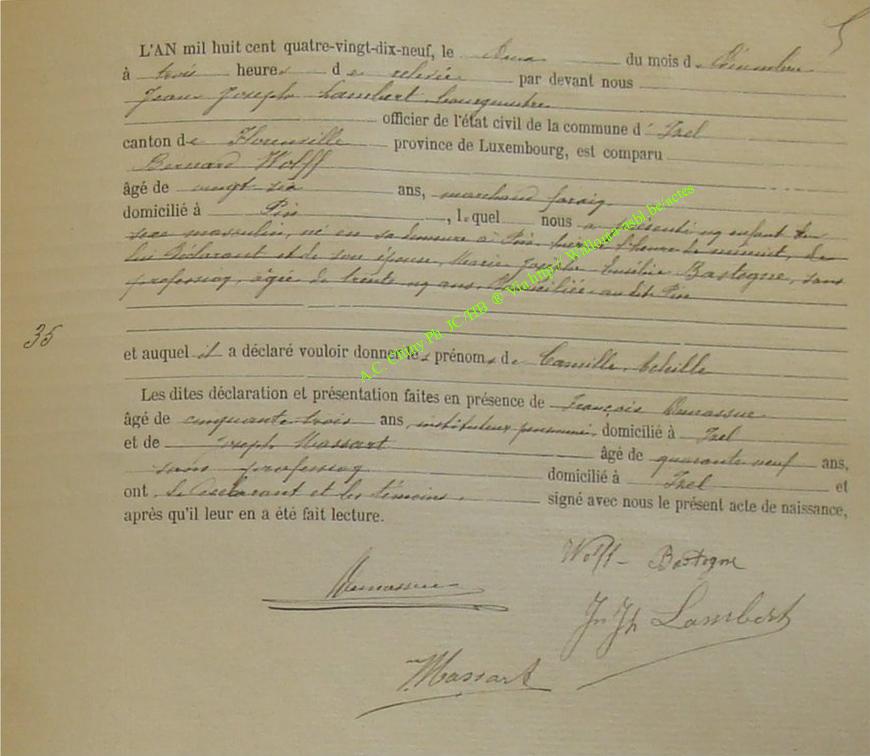 5
L'AN mil huit cent quatre-vingt-dix-neuf, le Deux du mois de Décembre
à trois heures de relevée par devant nous
Jean Joseph Lambert, bourgmestre
officier de l'état civil de la commune d' Izel
canton de Florenville province de Luxembourg, est comparu
Bernard Wolff
âgé de vingt six ans, marchand forain
domicilié à Pin, lequel nous a présenté un enfant du
sexe masculin, né en sa demeure à Pin, l'heure de minuit, de
lui déclarant et de son épouse, Marie Josèphe Emélie Bastogne, sans
profession, âgée de trente un ans, domiciliée au dit Pin
35
et auquel il a déclaré vouloir donner les prénoms de Camille, Achille
Les dites déclaration et présentation faites en présence de François DemasSue
âgé de cinquante trois ans, instituteur pensionné, domicilié à Izel
et de Joseph Massart âgé de quarante neuf ans,
sans profession domicilié à Izel et
ont, le déclarant et les témoins, signé avec nous le présent acte de naissance,
après qu'il leur en a été fait lecture.
Wolff - Bastogne
Jn Jh Lambert
Massart
A.C. Chiny Ph JC/HB ® Via http:// Wallonia asbl.be/actes